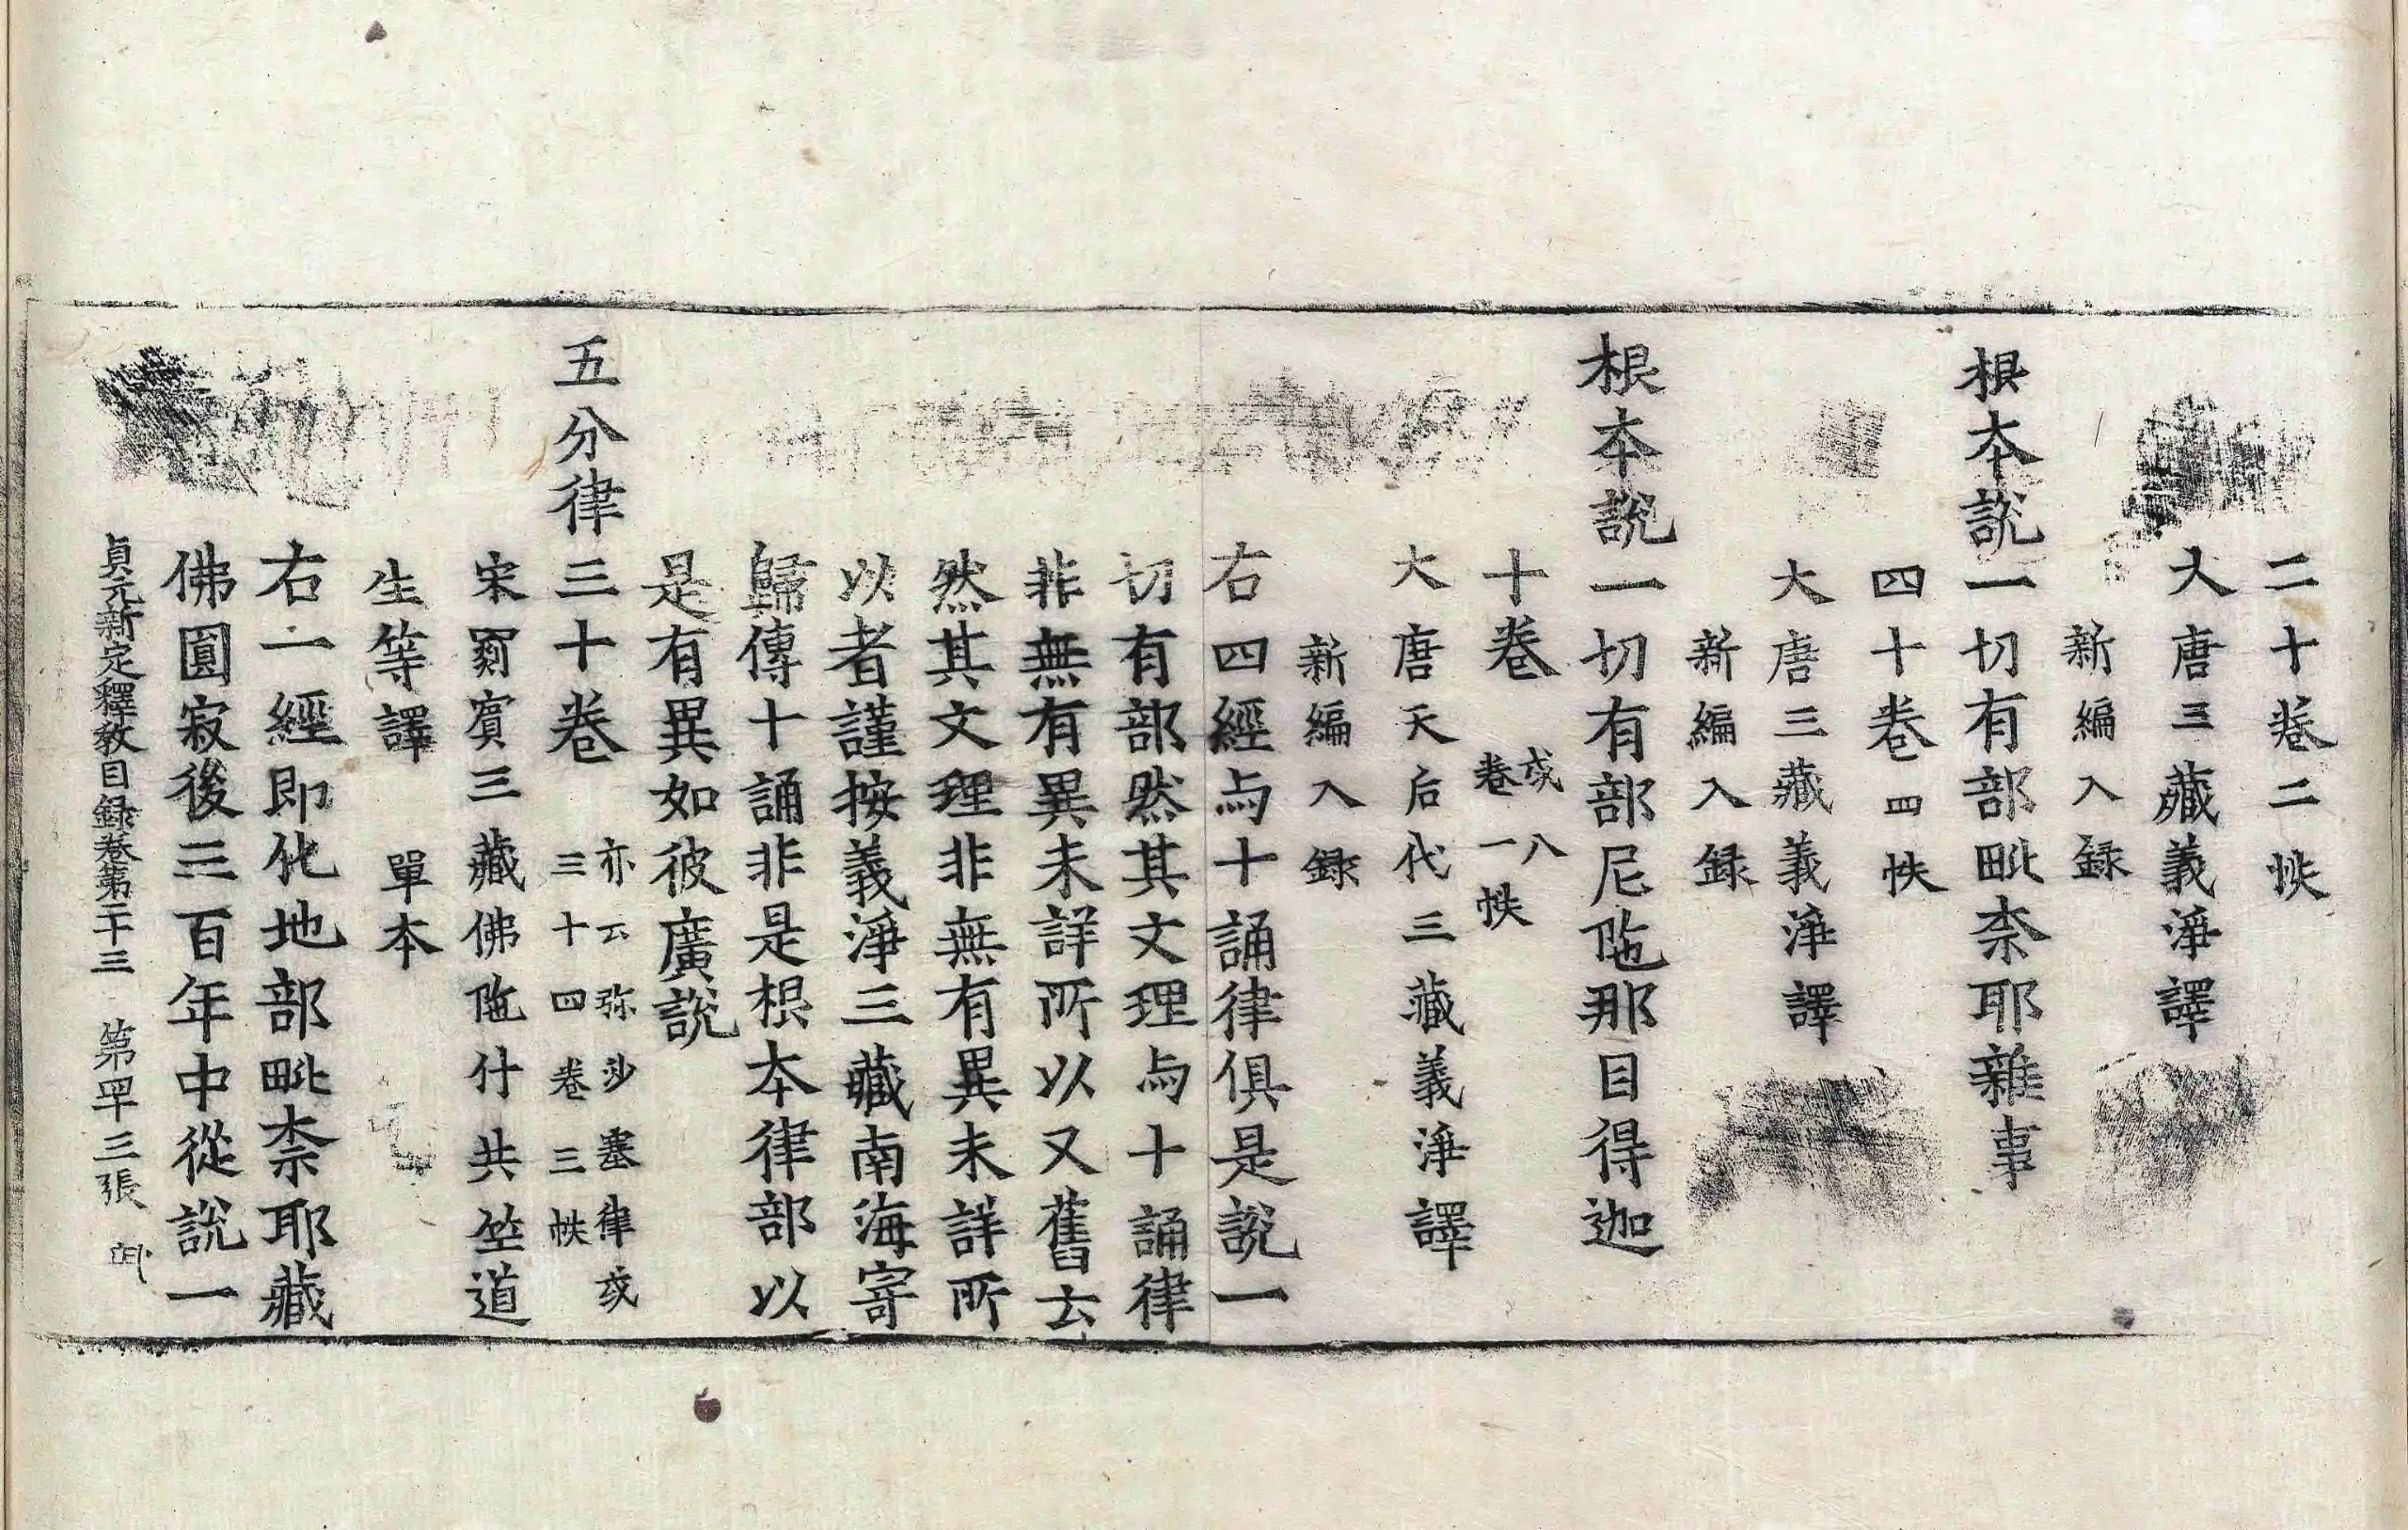 二十卷二帙
大唐三藏義淨譯
新編入録
根本說一切有部毗柰耶雜事
四十卷四帙
大唐三藏義淨譯
新編入録
根本說一切有部尼陁那目得迦
十卷 或八卷一帙
大唐天后代三藏義淨譯
新編入録
右四經与十誦律俱是說一
切有部然其文理与十誦律
非無有異未詳所以又舊云
然其文理非無有異未詳所
以者謹按義淨三藏南海寄
歸傳十誦非是根本律部以
是有異如彼廣說
五分律三十卷 亦云弥沙塞律或三十四卷三帙
宋罽賓三藏佛陁什共竺道
生等譯 單本
右一經即化地部毗柰耶藏
佛圓寂後三百年中從說一
貞元新定釋教目録卷第二十三 第四十三張